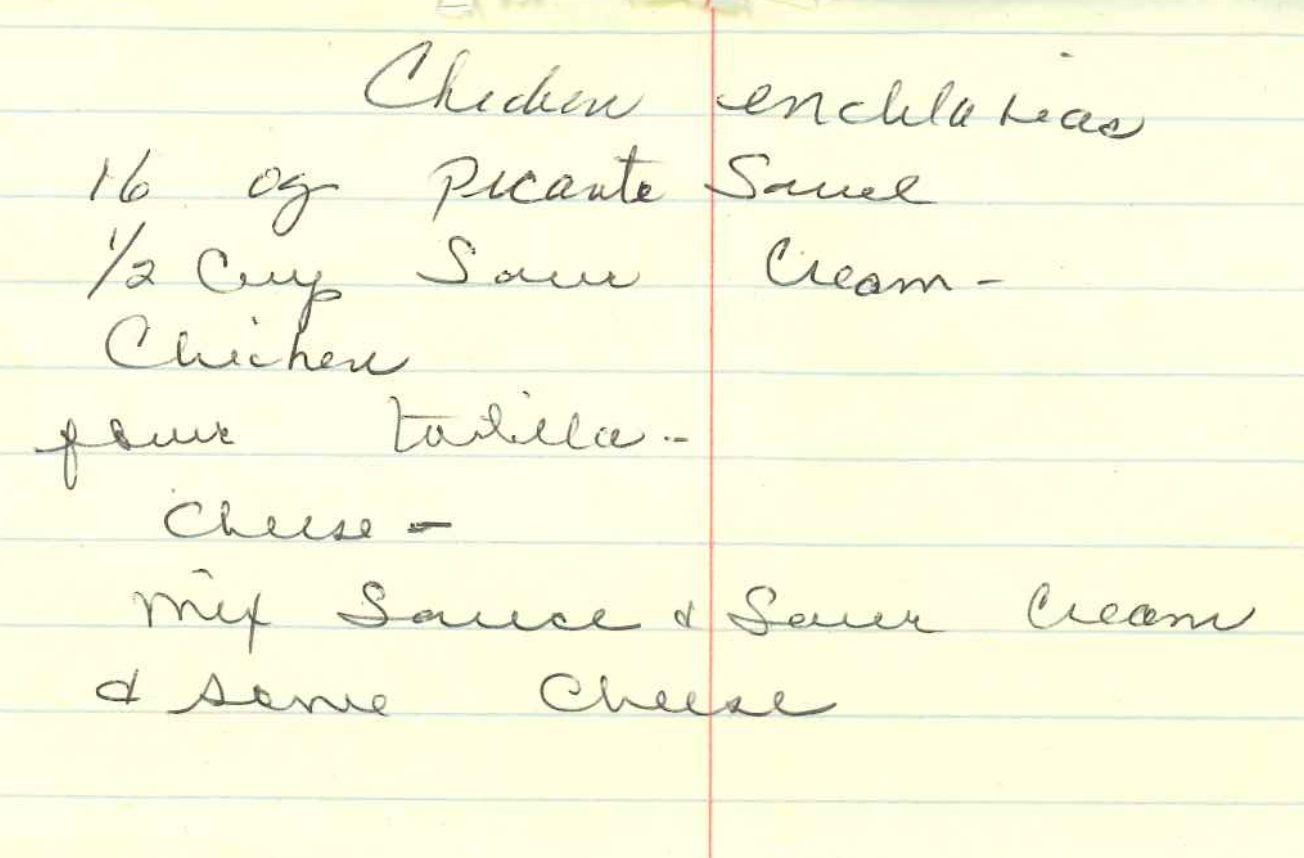 Chicken enchlatias
16 oz picante Sauce
1/2 Cup Sour Cream -
Chicken
flour tortilla -
Cheese -
Mix Sauce & Sour Cream
& some Cheese